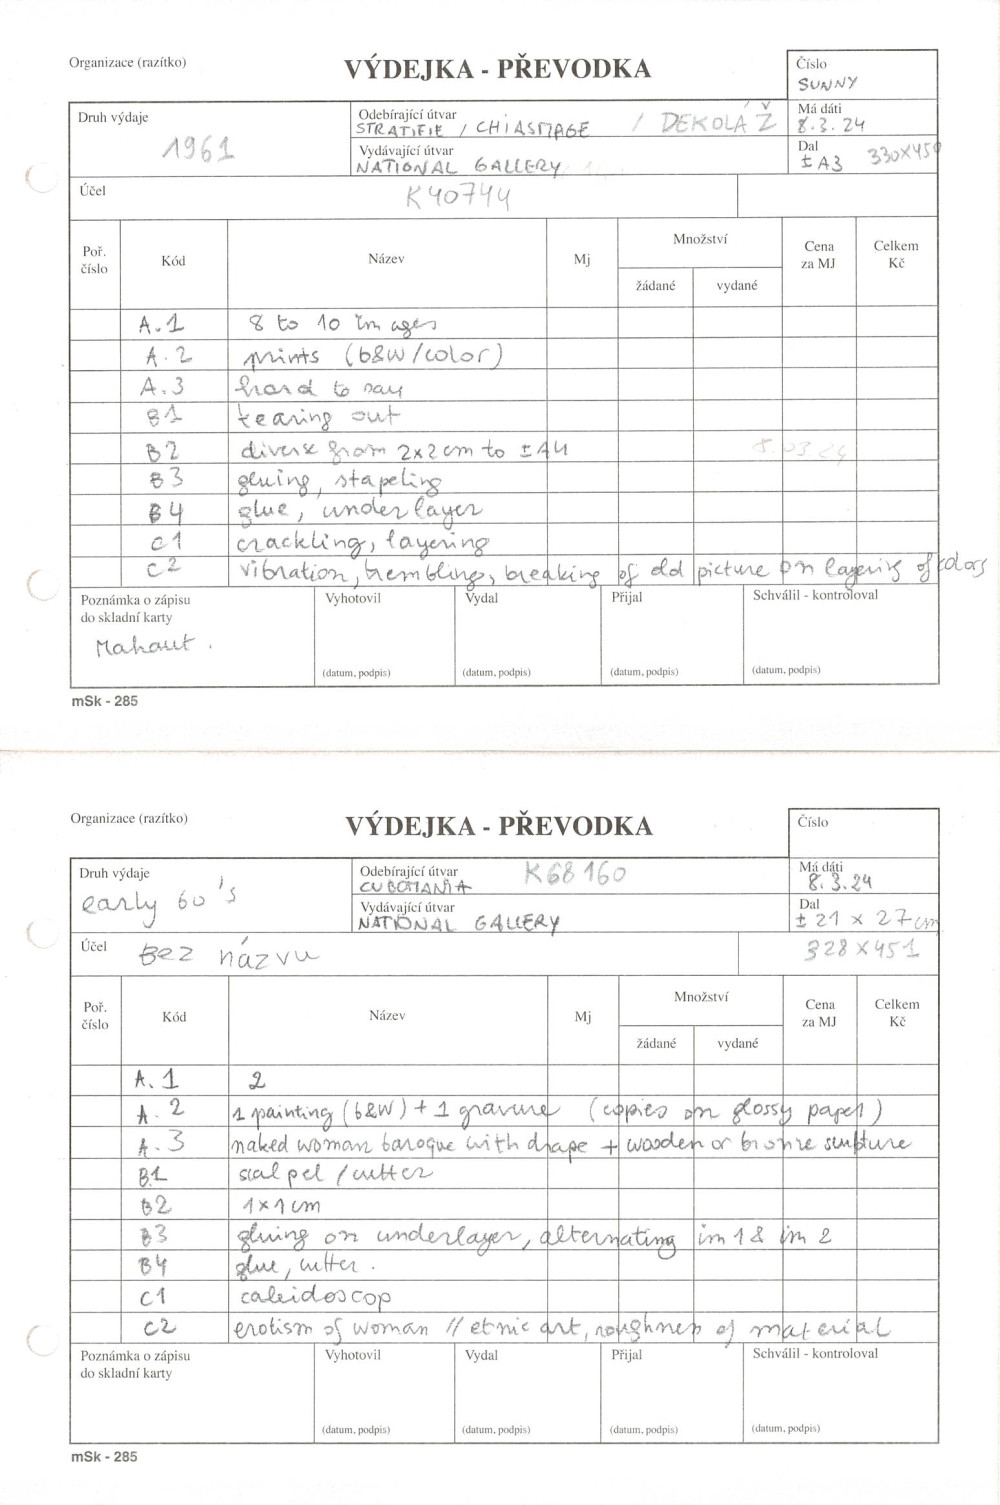 Organizace (razítko)
VÝDEJKA - PŘEVODKA
Číslo
SUNNY
Druh výdaje
1961
Odebírající útvar
STRATIFIE / CHIASMAGE / DEKOLÁŽ
Má dáti
8.3.24
Vydávající útvar
NATIONAL GALLERY
Dal
± A3 330×450
Účel
K40744
Poř. číslo Kód Název Mj Množství Cena za MJ Celkem Kč
žádané vydané
A.1 8 to 10 images
A.2 prints (b&W/color)
A.3 hard to say
B1 tearing out
B2 diverse from 2×2cm to ±A4 8.03.24
B3 gluing, stapeling
B4 glue, underlayer
C1 crackling, layering
C2 vibration, trembling, breaking of old picture on layering of colors
Poznámka o zápisu
do skladní karty
Mahaut.
Vyhotovil Vydal Přijal Schválil - kontroloval
(datum, podpis) (datum, podpis) (datum, podpis) (datum, podpis)
mSk - 285
Organizace (razítko)
VÝDEJKA - PŘEVODKA
Číslo
Druh výdaje
early 60's
Odebírající útvar
CUBOMANIA K68160
Má dáti
8.3.24
Vydávající útvar
NATIONAL GALLERY
Dal
± 21 × 27cm
Účel
Bez názvu
328×451
Poř. číslo Kód Název Mj Množství Cena za MJ Celkem Kč
žádané vydané
A.1 2
A.2 1 painting (b&W) + 1 gravure (copies on glossy paper)
A.3 naked woman baroque with drape + wooden or bronze sculpture
B1 scalpel / cutter
B2 1×1cm
B3 gluing on underlayer, alternating im 1 & im 2
B4 glue, cutter.
C1 caleidoscop
C2 erotism of woman // etnic art, roughness of material
Poznámka o zápisu
do skladní karty
Vyhotovil Vydal Přijal Schválil - kontroloval
(datum, podpis) (datum, podpis) (datum, podpis) (datum, podpis)
mSk - 285